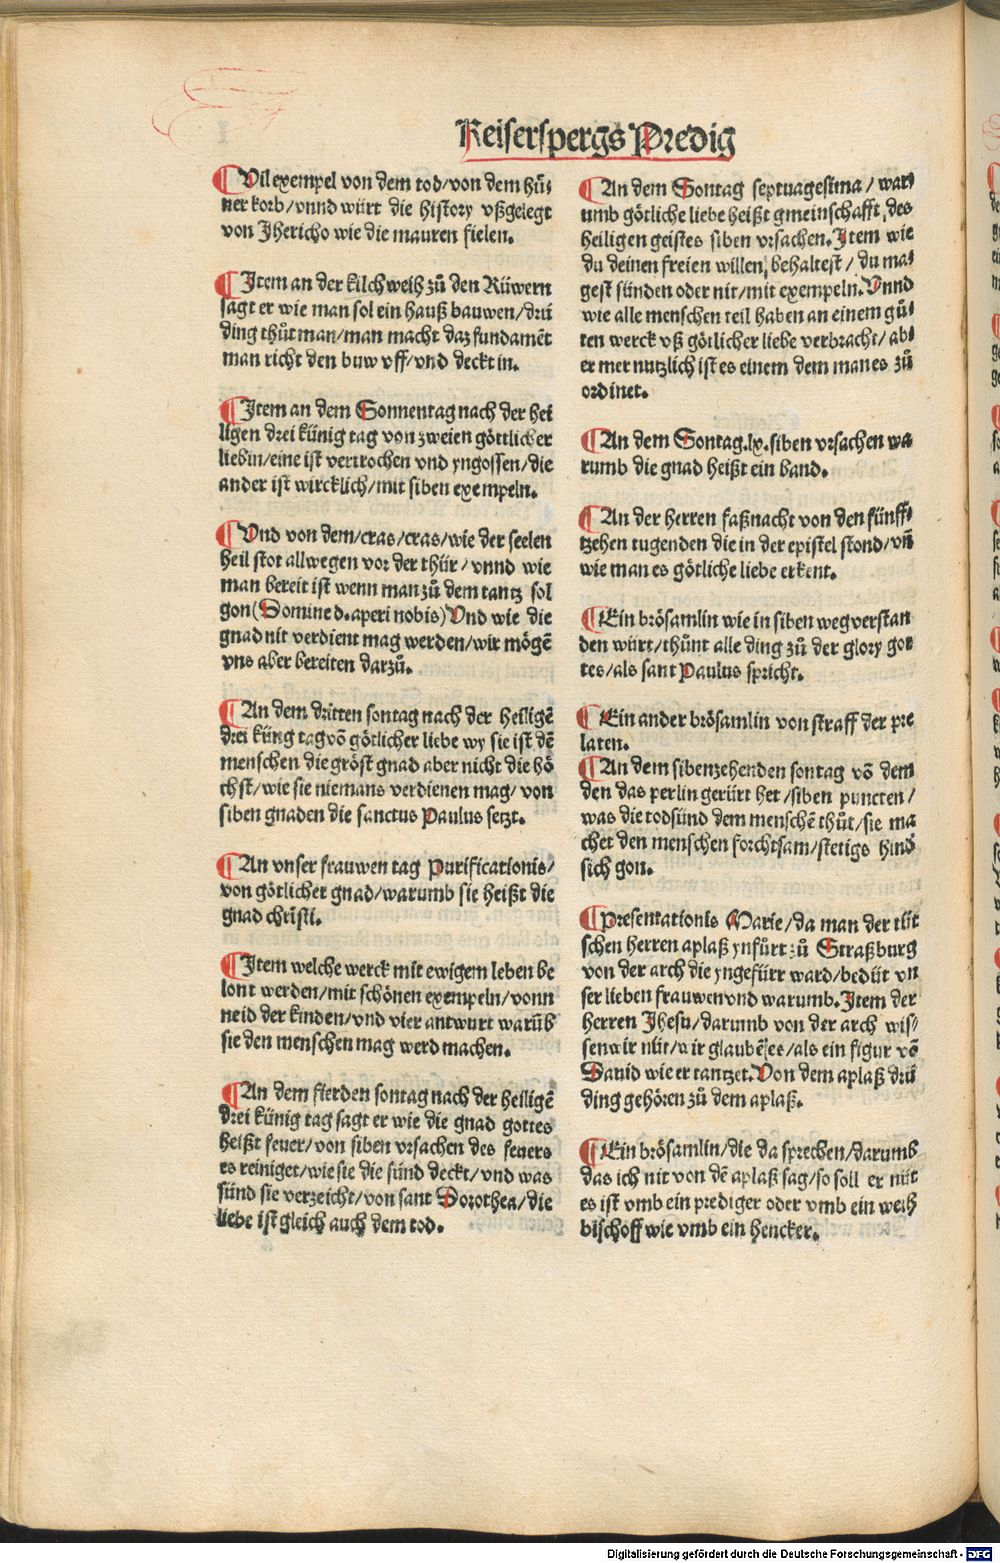 Keiserspergs Predig
¶Vil exempel von dem tod/von dem hüͤ⸗
ner korb/vnnd würt die history vßgelegt
von Jhericho wie die mauren fielen.
¶Item an der kilchweih zů den Rüwern
sagt er wie man sol ein hauß bauwen/drü
ding thůt man/man macht daz fundamēt
man richt den buw vff/vnd deckt in.
¶Item an dem Sonnentag nach der hei
ligen drei künig tag von zweien göttlicher
liebin/eine ist vertrochen vnd yngossen/die
ander ist wircklich/mit siben exempeln.
¶Vnd von dem/cras/cras/wie der seelen
heil stot allwegen vor der thür/vnnd wie
man bereit ist wenn man zů dem tantz sol
gon(Domine d.aperi nobis)Vnd wie die
gnad nit verdient mag werden/wir mögē
vns aber bereiten darzů.
¶An dem dritten sontag nach der heiligē
drei küng tag vō götlicher liebe wy sie ist dē
menschen die gröst gnad aber nicht die hö
chst/wie sie niemans verdienen mag/von
siben gnaden die sanctus Paulus setzt.
¶An vnser frauwen tag Purificationis/
von götlicher gnad/warumb sie heißt die
gnad christi.
¶Item welche werck mit ewigem leben be
lont werden/mit schönen exempeln/vonn
neid der kinden/vnd vier antwurt warūb
sie den menschen mag werd machen.
¶An dem fierden sontag nach der heiligē
drei künig tag sagt er wie die gnad gottes
heißt feuer/von siben vrsachen des feuers
es reiniget/wie sie die sünd deckt/vnd was
sünd sie verzeicht/von sant Dorothea/die
liebe ist gleich auch dem tod.
¶An dem Sontag septuagesima/war⸗
umb götliche liebe heißt gmeinschafft des
heiligen geistes siben vrsachen. Item wie
du deinen freien willen behaltest/du ma⸗
gest sünden oder nit/mit exempeln. Vnnd
wie alle menschen teil haben an einem gůͤ⸗
ten werck vß götlicher liebe verbracht/ab⸗
er mer nutzlich ist es einem dem man es zů
ordinet.
¶An dem Sontag.lx.siben vrsachen wa
rumb die gnad heißt ein band.
¶An der herren faßnacht von den fünff⸗
tzehen tugenden die in der epistel stond/vñ
wie man es götliche liebe erkent.
¶Ein brösamlin wie in siben weg verstan
den würt/thůnt alle ding zů der glory got
tes/als sant Paulus spricht.
¶Ein ander brösamlin von straff der pre
laten.
¶An dem sibenzehenden sontag vō dem
den das perlin gerürt het/siben puncten/
was die todsünd dem menschē thůt/sie ma
chet den menschen forchtsam/stetigs hind̄
sich gon.
¶Presentationis Marie/da man der tüt
schen herren aplaß ynfůrt zů Straßburg
von der arch die yngefürr ward/bedüt vn
ser lieben frauwen vnd warumb. Item der
herren Jhesu/darumb von der arch wis⸗
sen wir nüt/wir glaubē es/als ein figur vō
Dauid wie er tantzet. Von dem aplaß drü
ding gehören zů dem aplaß.
¶Ein brösamlin/die da sprechen/darumb
das ich nit von dē aplaß sag/so soll er nüt
es ist vmb ein prediger oder vmb ein weih
bischoff wie vmb ein hencker.
Digitalisierung gefördert durch die Deutsche Forschungsgemeinschaft - DFG